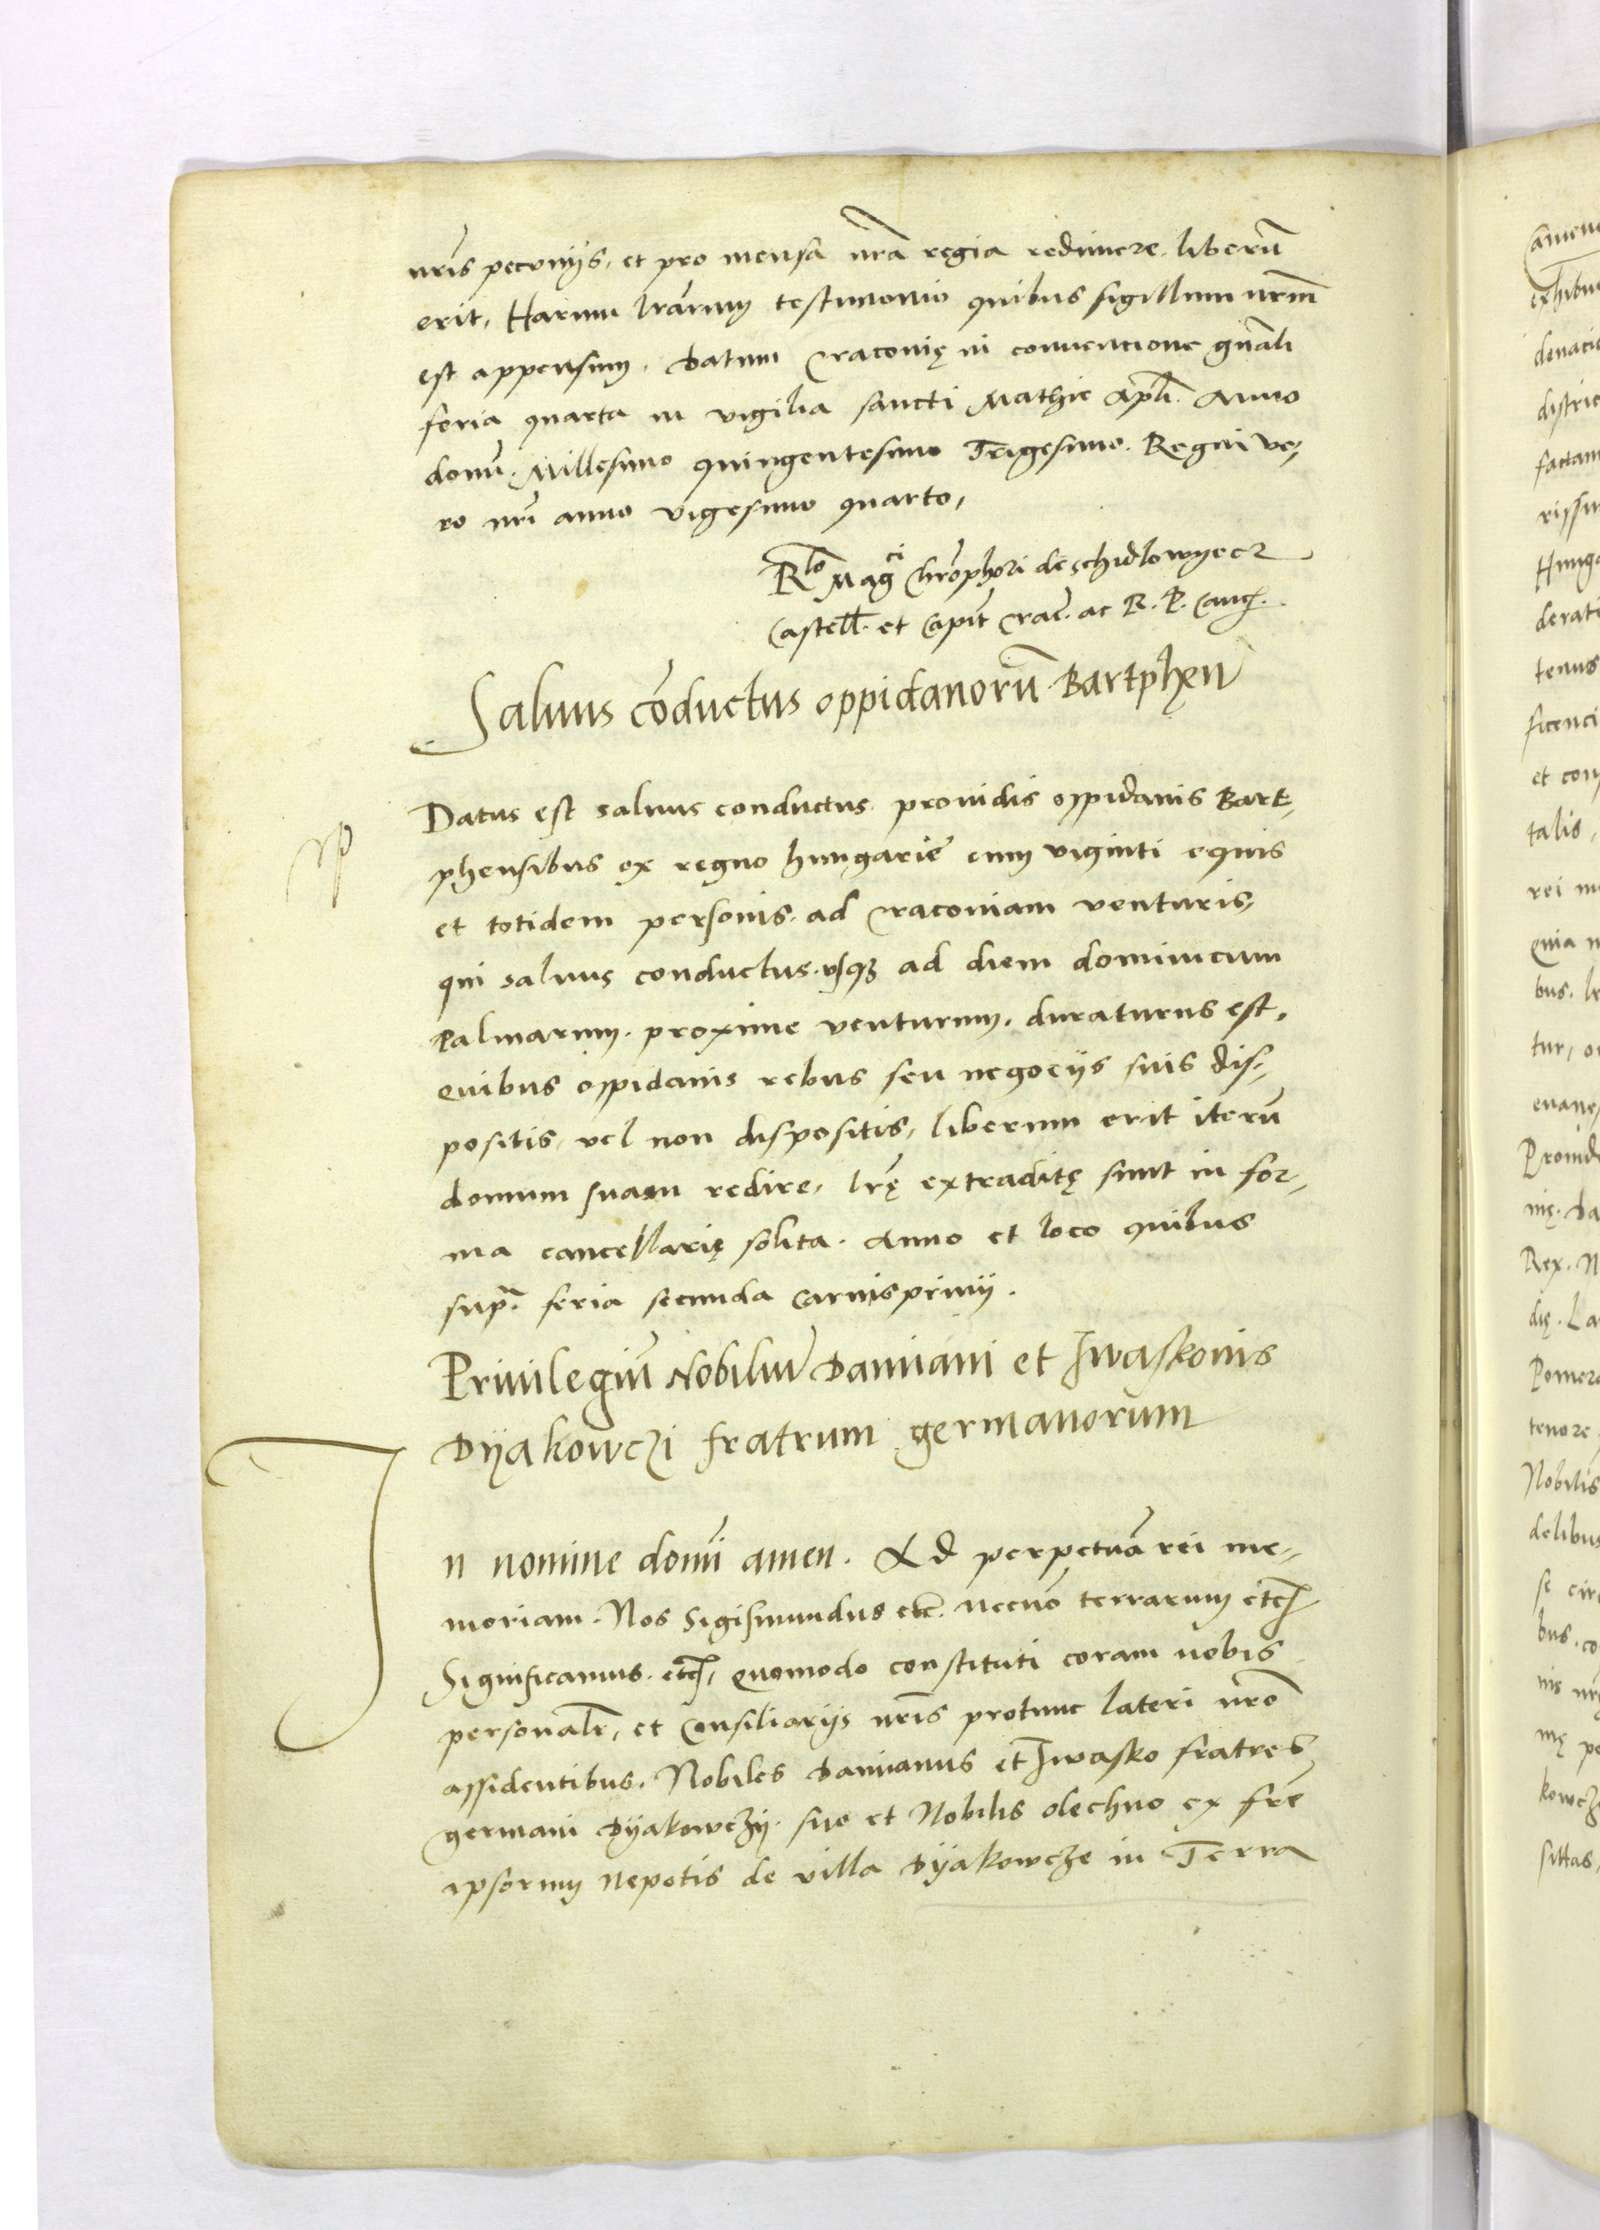 nr̃is pecunijs, et pro mensa nrã regia redimere liberũ
erit, Harum lr̃arum testimonio quibus sigillum nrũm
est appensum. Datum Cracovię in conventione gñali
feria quarta in vigilia sancti Mathie Apli. Anno
domi. Millesimo quingentesimo Trigesimo. Regni ve,
ro nri anno vigesimo quarto,
Rlo Magci Chrõphori de Schidlowyecz
Castell. et Capit Crac. ac R. P. Canc.
Salvus cõductus oppidanorũ Bartphen
Datus est salvus conductus providis oppidanis Bart,
phensibus ex regno hungarie cum viginti equis
et totidem personis ad Cracoviam venturis,
qui salvus conductus usq3 ad diem dominicum
Palmarum proxime venturum, duraturus est,
Quibus oppidanis rebus seu negocijs suis dis,
positis, vel non dispositis, liberum erit iterũ
domum suam redire, lrę extraditę sunt in for,
ma cancellarię solita. Anno et loco quibus
supra. feria secunda carnisprivij.
Privilegiũ Nobiliũ Damiani et Iwaskonis
Dyakowczi fratrum germanorum
In nomine domi amen. Ad perpetuã rei me,
moriam. Nos Sigismundus etc. necnõ terrarum etc
Significamus. etc, Quomodo constituti coram nobis
personalr, et Consiliarijs nris protunc lateri nrõ
assidentibus. Nobiles Damianus et Iwasko fratres
germani Dyakowczy. suo et Nobilis olechno ex fre
ipsorum nepotis de villa Dyakowcze in Terra